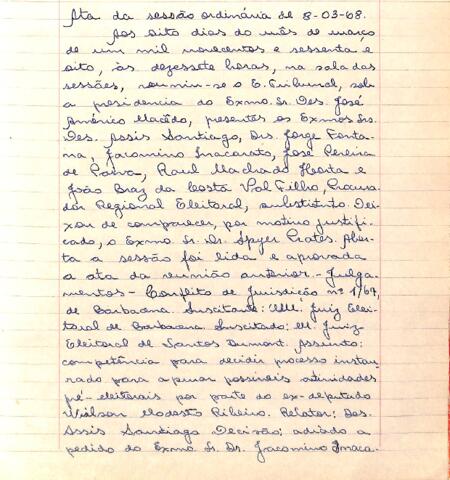 Ata da sessão ordinária de 8-03-68.
Aos oito dias do mês de março
de um mil novecentos e sessenta e
oito, às dezessete horas, na sala das
sessões, reuniu-se o E. Tribunal, sob
a presidencia do Exmo. Sr. Des. José
Américo Macêdo, presentes os Exmos Srs.
Des. Assis Santiago, Drs. Jorge Fonta-
na, Jacomino Inacarato, José Pereira
de Paiva, Raul Machado Horta e
João Braz da Costa Val Filho, Procura-
dor Regional Eleitoral, substituto. Dei-
xou de comparecer, por motivo justifi-
cado, o Exmo. Sr. Dr. Spyer Prates. Aber-
ta a sessão foi lida e aprovada
a ata da reunião anterior. - Julga-
mentos - Conflito de Jurisdição nº 1/67,
de Barbacena. Suscitante: MM. Juiz Elei-
toral de Barbacena. Suscitado: M. Juiz
Eleitoral de Santos Dumont. Assunto:
competência para decidir processo instau-
rado para apurar possíveis atividades
pré-eleitorais por parte do ex-deputado
Wilson Modesto Ribeiro. Relator: Des.
Assis Santiago Decisão: adiado a
pedido do Exmo. Sr. Dr. Jacomino Inaca-